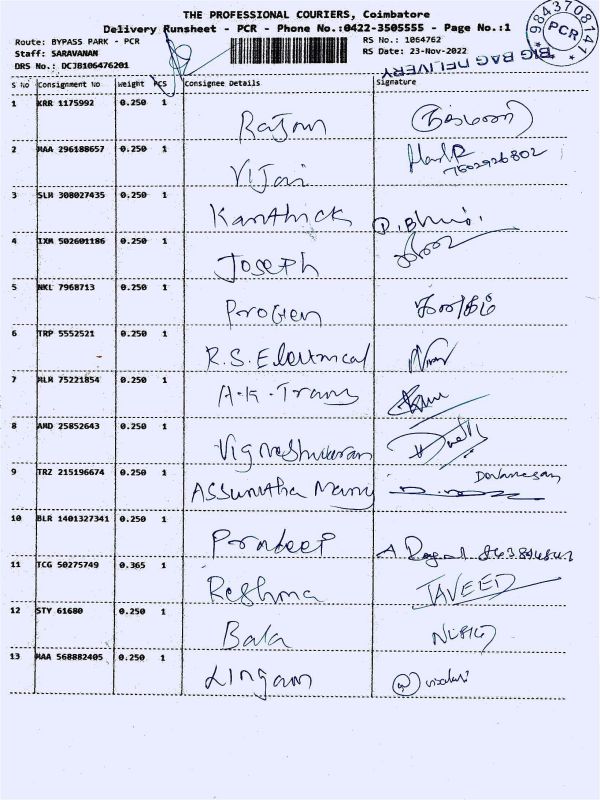 THE PROFESSIONAL COURIERS, Coimbatore
Delivery Runsheet - PCR - Phone No.:0422-3505555 - Page No.:1
Route: BYPASS PARK - PCR
RS No.: 1064762
Staff: SARAVANAN
RS Date: 23-Nov-2022
DRS No.: DCJB106476201
BIG BAG DELIVERY
9843708141
PCR
S No Consignment No weight PCS Consignee Details Signature
1 KRR 1175992 0.250 1 Rajan
2 MAA 296188657 0.250 1 Vijai 7502926802
3 SLM 308027435 0.250 1 Kanthick
4 IXM 502601186 0.250 1 Joseph
5 NKL 7968713 0.250 1 Progen
6 TRP 5552521 0.250 1 R.S. Electrical
7 MLM 75221854 0.250 1 A.K. Trans
8 AMD 25852643 0.250 1 Vigneshwaran
9 TRZ 215196674 0.250 1 Assuntha Mary
10 BLR 1401327341 0.250 1 Pradeep
11 TCG 50275749 0.365 1 Reshma JAVEED
12 STY 61680 0.250 1 Bala
13 MAA 568882405 0.250 1 Lingam